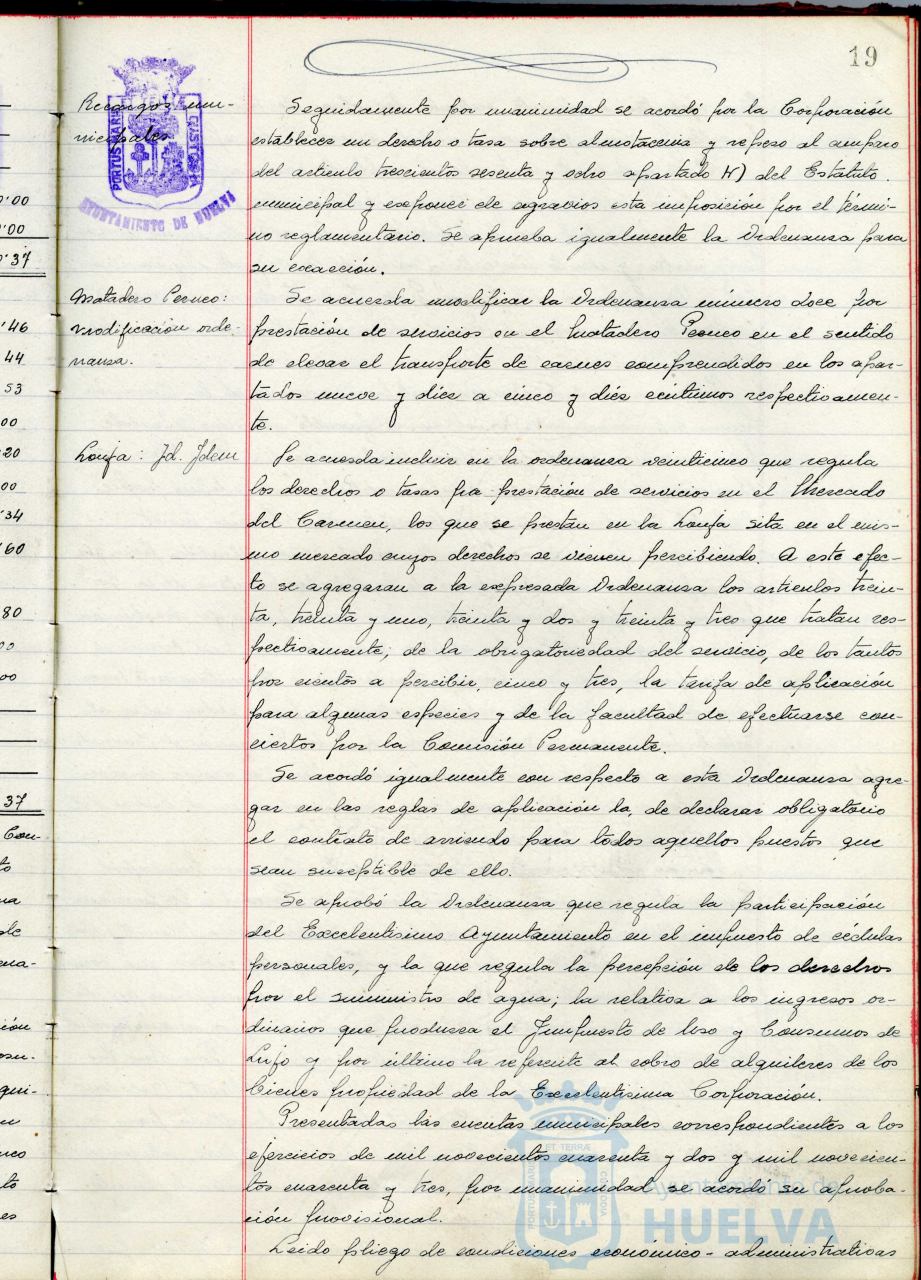 19
Recargos mu-
nicipales
PORTUS MARIS
CUSTODIA
AYUNTAMIENTO DE HUELVA
Seguidamente por unanimidad se acordó por la Corporación
establecer un derecho o tasa sobre almotacenia y repeso al amparo
del articulo trescientos sesenta y ocho apartado H) del Estatuto
municipal y exponer de agravios esta imposición por el térmi-
no reglamentario. Se aprueba igualmente la Ordenanza para
su exacción.
Matadero Porcuno:
modificación orde-
nanza.
Se acuerda modificar la Ordenanza número doce por
prestación de servicios en el Matadero en el sentido
de elevar el transporte de carnes comprendidos en los apar-
tados nueve y diez a cinco y diez céntimos respectivamen-
te.
Lonja: Id. Idem
Se acuerda incluir en la ordenanza veinticinco que regula
los derechos o tasas pra prestación de servicios en el Mercado
del Carmen, los que se prestan en la Lonja sita en el mis-
mo mercado cuyos derechos se vienen percibiendo. A este efec-
to se agregaran a la expresada Ordenanza los articulos trein-
ta, treinta y uno, treinta y dos y treinta y tres que tratan res-
pectivamente; de la obrigatoriedad del servicio, de los tantos
por cientos a percibir, cinco y tres, la tarifa de aplicación
para algunas especies y de la facultad de efectuarse con-
ciertos por la Comisión Permanente.
Se acordó igualmente con respecto a esta Ordenanza agre-
gar en las reglas de aplicación la, de declarar obligatorio
el contrato de arriendo para todos aquellos puestos que
sean suceptible de ello.
Se aprobó la Ordenanza que regula la participación
del Excelentisimo Ayuntamiento en el impuesto de cédulas
personales, y la que regula la percepción de los derechos
por el suministro de agua; la relativa a los ingresos or-
dinarios que produzca el Impuesto de Uso y Consumos de
Lujo y por último la referente al cobro de alquileres de los
bienes propiedad de la Excelentisima Corporación.
Presentadas las cuentas municipales correspondientes a los
ejercicios de mil novecientos cuarenta y dos y mil novecien-
tos cuarenta y tres, por unanimidad se acordó su aproba-
ción provisional.
Leido pliego de condiciones económico-administrativas
Ayuntamiento de
HUELVA